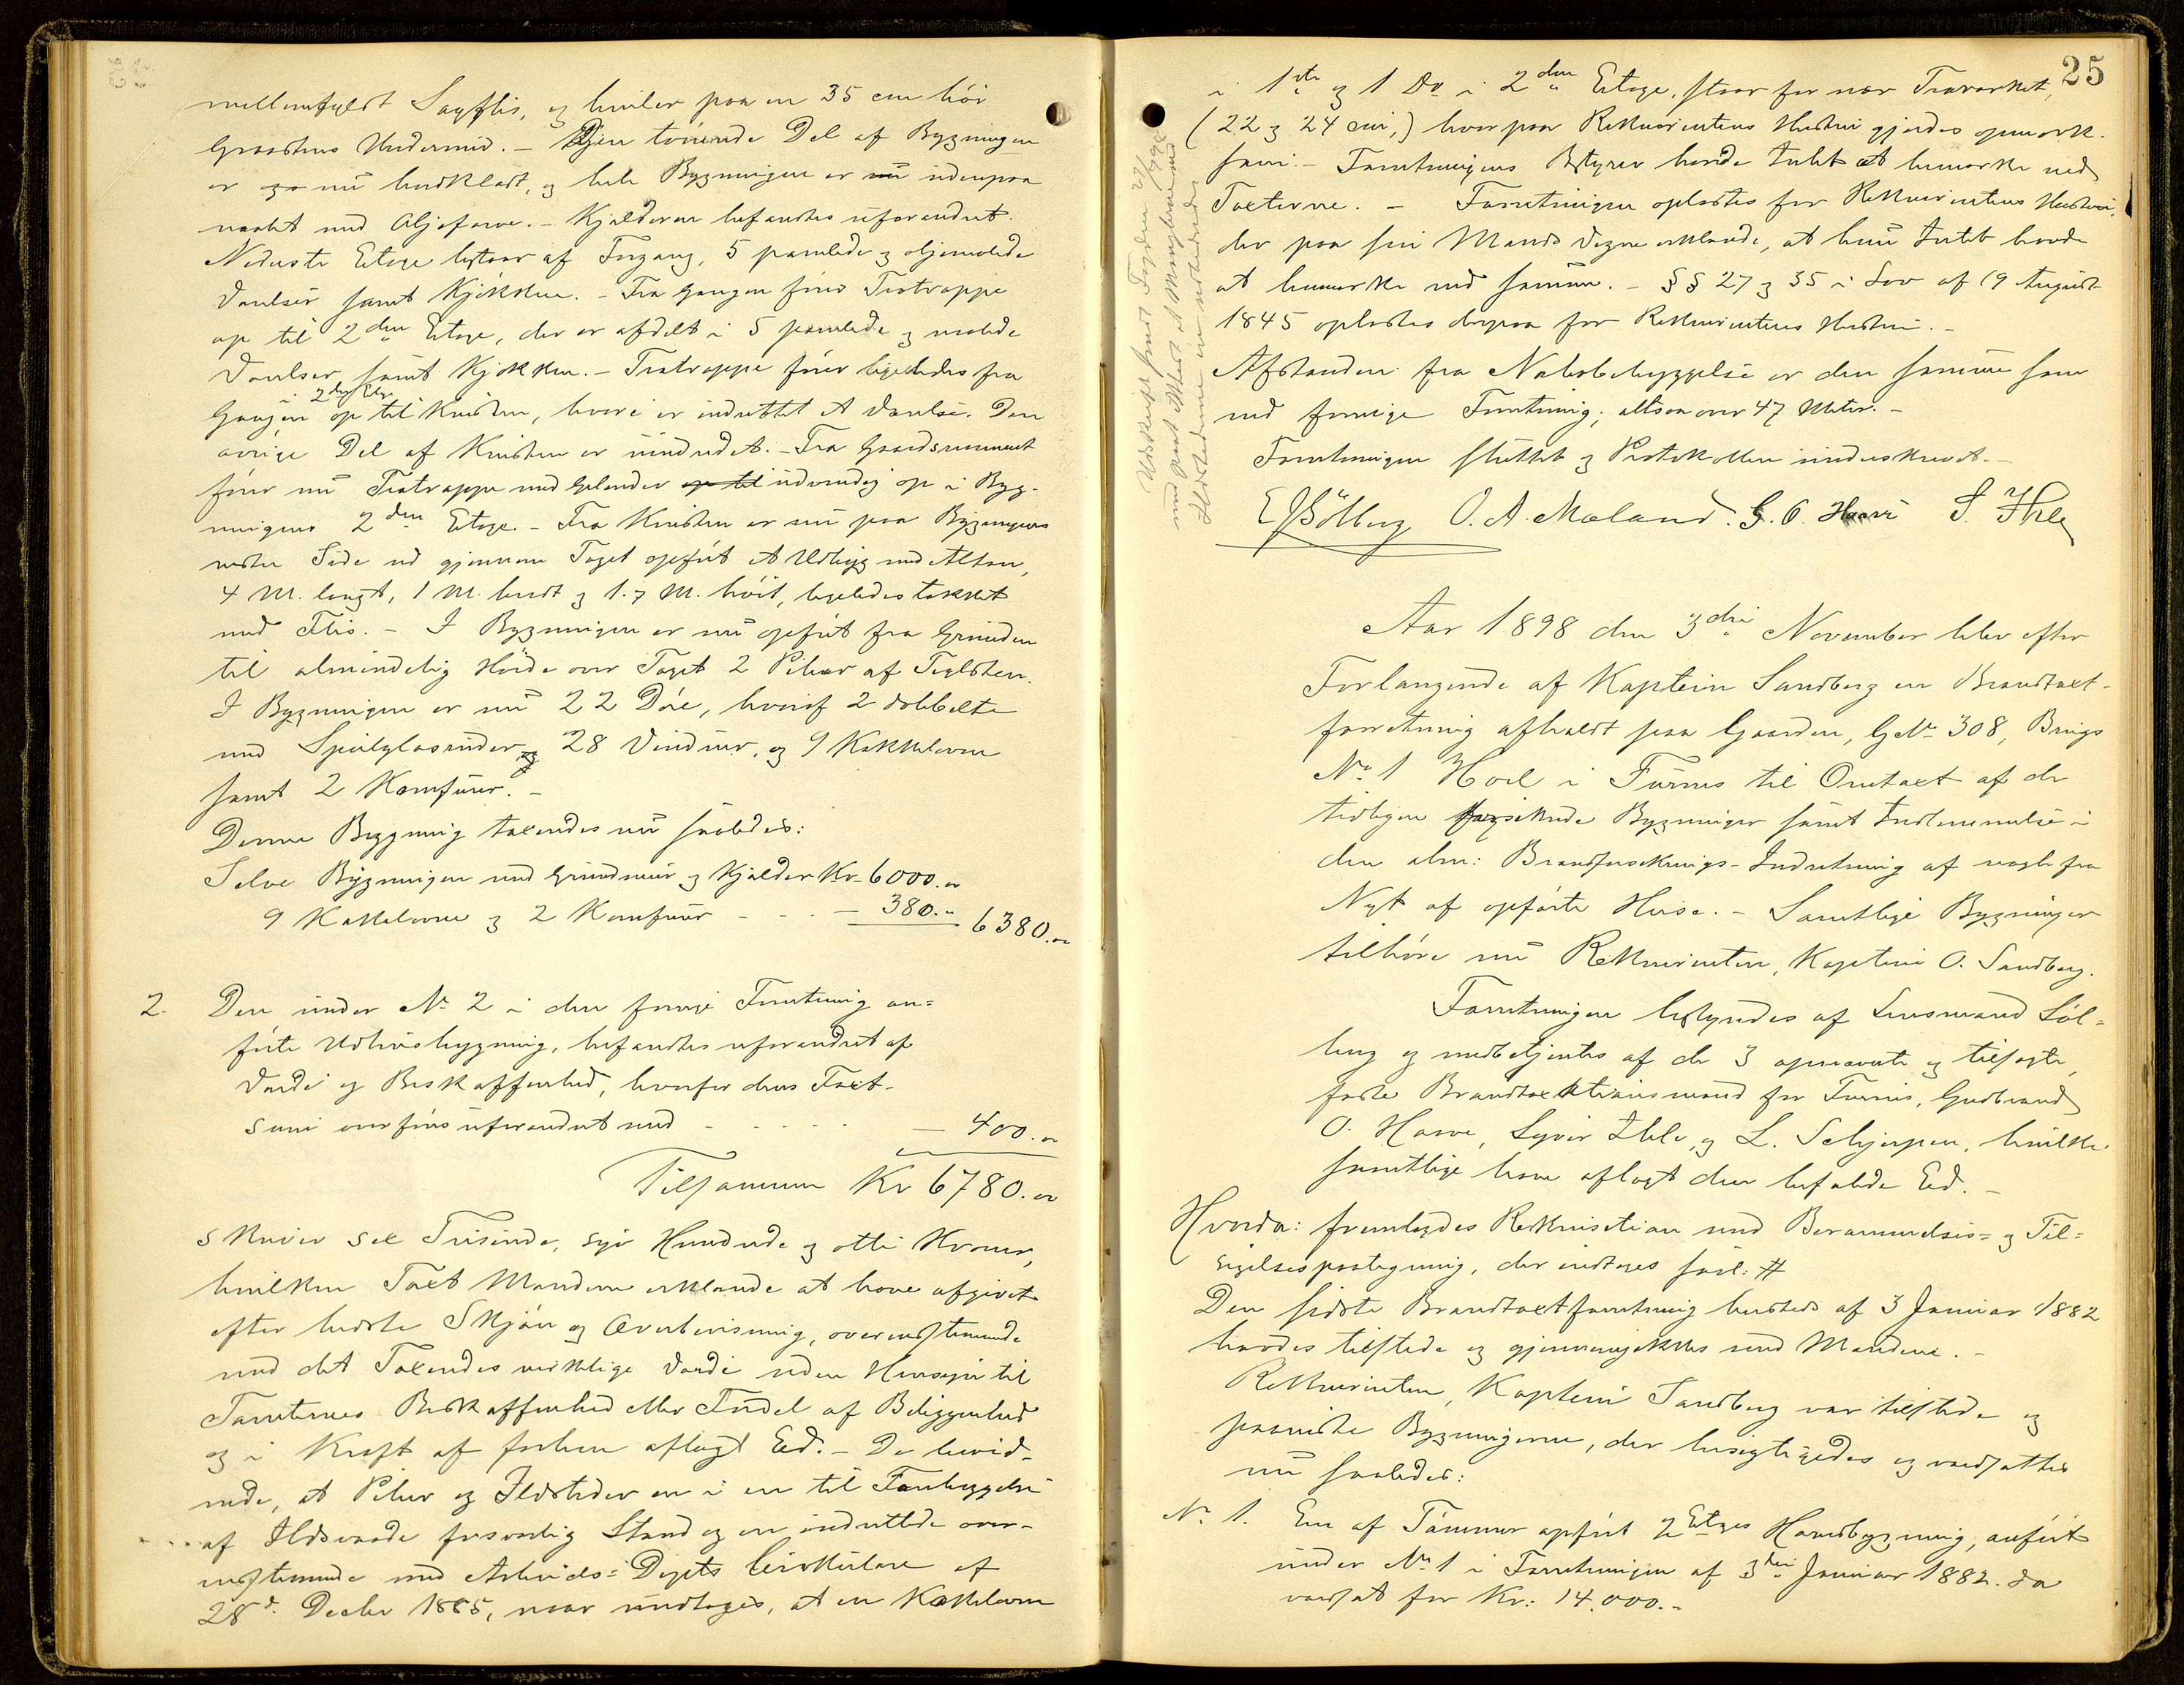 mellemfyldt Sagflis, og hviler paa en 35 cm høi
Graastens Undermur. – Hjen tömrede Del af Bygningen
er nu bordklædt, og hele Bygningen er nu udenpaa
malet med Oljefarve. – Kjælderen befandtes uforandret.
Nederste Etage bestaar af Forgang, 5 panelede og oljemalede
Værelser samt Kjøkken. – Fra Gangen förer Trætrappe
op til 2den Etage, der er afdelt i 5 panelede og malede
Værelser samt Kjøkken. – Trætrappe förer ligeledes fra
Gangen i 2den Etg. op til Kvisten, hvori er indrettet et Værelse. Den
övrige Del af Kvisten er uindredet. – Fra Gaardsrummet
förer nu Trætrappe med Gelender op til udvendig op i Byg-
ningens 2den Etage. – Fra Kvisten er nu paa Bygningens
vestre Side ud gjennem Taget opført et Udbyg med Altan,
4 M. langt, 1 M. bredt og 1.7 M. höit, ligeledes tækket
med Flis. – I Bygningen er nu opført fra Grunden
til almindelig Höide over Taget 2 Piber af Teglsten.
I Bygningen er nu 22 Döre, hvoraf 2 dobbelte
med Speilglasruder, og 28 Vinduer, og 9 Kakkelovne
samt 2 Komfurer. –
Denne Bygning taxeredes nu saaledes:
Selve Bygningen med Grundmur og Kjælder Kr. 6000.00
9 Kakkelovne og 2 Komfurer – – – 380.00 6380.00
2. Den under No 2 i den forrige Forretning an=
förte Udhusbygning, befandtes uforandret af
Værdi og Beskaffenhed, hvorfor dens Taxt-
sum overföres uforandret med – – – – 400.00
Tilsammen Kr 6780.00
skriver sex Tusinde, syv Hundrede og otti Kroner,
hvilken Taxt Mændene erklærede at have afgivet
efter bedste Skjön og Overbevisning, overensstemmende
med det Taxeredes virkelige Værdi uden Hensyn til
Tomternes Beskaffenhed eller Fordel af Beliggenhed
og i Kraft af forhen aflagt Ed. – De bevid-
nede, at Piber og Ildsteder er i en til Forebyggelse
af Ildsvaade forsvarlig Stand og er indrettede over-
ensstemmende med Arbeids=Depts Cirkulære af
28d. Decbr 1885, naar undtages, at en Kakkelovn
25
i 1ste og 1 Do i 2den Etage, staar for nær Træværket,
(22 og 24 cm,) hvorpaa Rekvirentens Hustru gjordes opmærk-
som. – Forretningens Bestyrer havde Intet at bemærke ved
Taxterne. – Forretningen oplæstes for Rekvirentens Hustru,
der paa sin Mands Vegne erklærede, at hun Intet havde
at bemærke ved samme. – §§ 27 og 35 i Lov af 19 August
1845 oplæstes derpaa for Rekvirentens Hustru. –
Afstanden fra Nabobebyggelse er den samme som
ved forrige Forretning; altsaa over 47 Meter. –
Forretningen sluttet og Protokollen underskrevet. –
E Sölberg O. A. Mæland. G. O. Haave S. Ihle
Aar 1898 den 3die November blev efter
Forlangende af Kaptein Sandberg en Brandtaxt-
forretning afholdt paa Gaarden, G.No 308, Brugs
No 1 Hoel i Furnes til Omtaxt af de
tidligere forsikrede Bygninger samt Indlemmelse i
den alm: Brandforsikrings-Indretning af nogle fra
Nyt af opförte Huse. – Samtlige Bygninger
tilhöre nu Rekvirenten, Kaptein O. Sandberg.
Forretningen bestyredes af Lensmand Söl=
berg og medbetjentes af de 3 opnævnte og tilsagte,
faste Brandtaxtationsmænd for Furnes, Gudbrand
O. Haave, Syver Ihle og L. Schjerpen, hvilke
samtlige have aflagt den befalede Ed. –
Hvorda: fremlagdes Rekvisition med Berammelses= og Til=
sigelsespaategning, der indtages saal: #
Den sidste Brandtaxtforretning hersteds af 3 Januar 1882
havdes tilstede og gjennemgikkes med Mændene. –
Rekvirenten, Kaptein Sandberg var tilstede og
paaviste Bygningerne, der besigtigedes og værdsattes
nu saaledes:
No 1. En af Tömmer opført 2 Etages Hovedbygning, anført
under No 1 i Forretningen af 3die Januar 1882. da
værdsat for Kr: 14.000.–